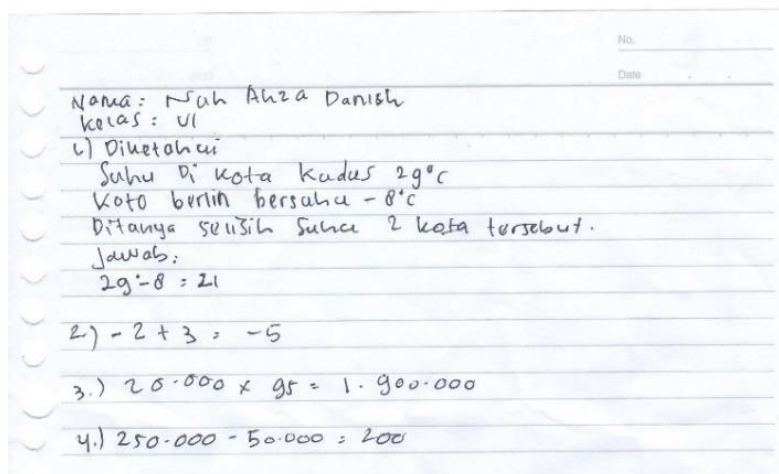 No.
Date
Nama: Nuh Ahza Danish
Kelas: VI
1) Diketahui
Suhu Di Kota Kudus 29°C
Koto berlin bersahu - 8°C
Ditanya selisih Suhu 2 kota tersebut.
Jawab:
29-8 = 21
2) - 2 + 3 = -5
3.) 20.000 x 95 = 1.900.000
4.) 250.000 - 50.000 = 200